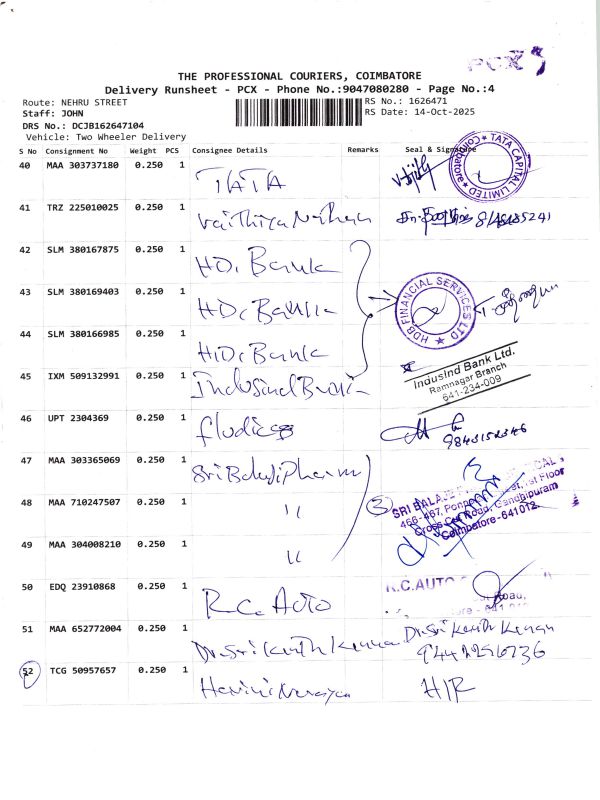 PCX
THE PROFESSIONAL COURIERS, COIMBATORE
Delivery Runsheet - PCX - Phone No.:9047080280 - Page No.:4
Route: NEHRU STREET
RS No.: 1626471
Staff: JOHN
RS Date: 14-Oct-2025
DRS No.: DCJB162647104
Vehicle: Two Wheeler Delivery
S No Consignment No Weight PCS Consignee Details Remarks Seal & Signature
40 MAA 303737180 0.250 1 TATA
TATA CAPITAL LIMITED Coimbatore
41 TRZ 225010025 0.250 1 Vaithiyanathan
42 SLM 380167875 0.250 1 HD. Bank
43 SLM 380169403 0.250 1 HD. Bank
HDB FINANCIAL SERVICES LTD
44 SLM 380166985 0.250 1 HD. Bank
45 IXM 509132991 0.250 1 Indusind Bank
IndusInd Bank Ltd.
Ramnagar Branch
641-234-009
46 UPT 2304369 0.250 1
9843152346
47 MAA 303365069 0.250 1 Sri Balaji Pharm
48 MAA 710247507 0.250 1 "
3
SRI BALAJI
466-467, 1st Floor
Cross Cut Road, Gandhipuram
Coimbatore-641012.
49 MAA 304008210 0.250 1 "
50 EDQ 23910868 0.250 1 R.C. Auto
R.C.AUTO
Road,
51 MAA 652772004 0.250 1 Dr. Srikanth Kannan Dr. Srikanth Kannan
52 TCG 50957657 0.250 1 Harini Narayan H/R